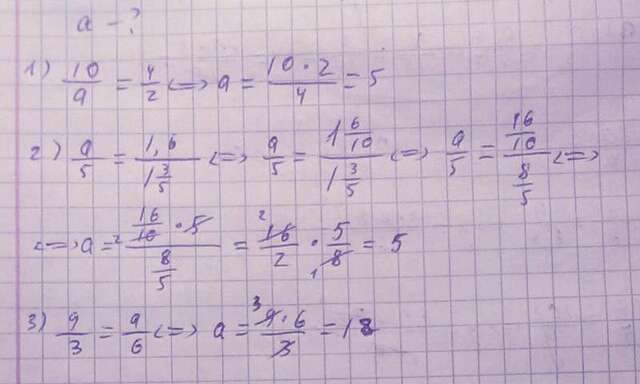 a - ?
1) 10/a = 4/2 <=> a = (10 · 2)/4 = 5
2) a/5 = 1,6/(1 3/5) <=> a/5 = (1 6/10)/(1 3/5) <=> a/5 = (16/10)/(8/5) <=>
<=> a = 2 (16/10 · 5)/(8/5) = 2 16/2 · 5/8 1 = 5
3) 9/3 = a/6 <=> a = 3 (9 · 6)/3 = 18